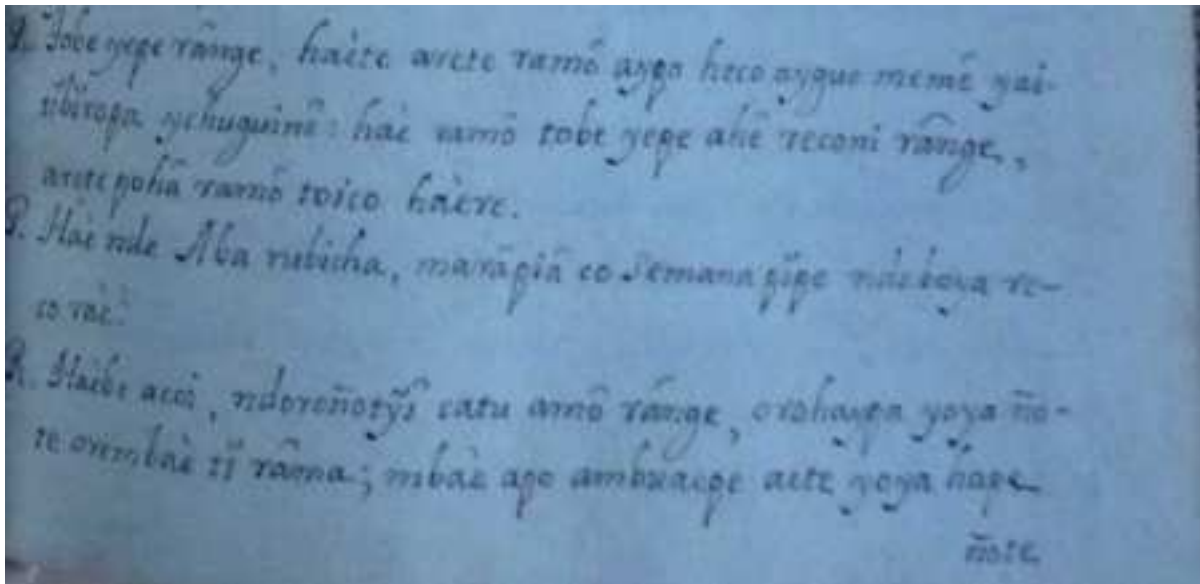 R. Tobe yepe rânge, haète arete ramô aypo heco aygue memê yai-
yehuguinê: haè ramô tobe yepe ahê reconi rânge,
arete pohâ ramô toico haère.
P. Haè nde Aba rubicha, marâpiâ co semana pîpe ndeboya re-
co raè?
R. acoi, ndoroñotỹ̂ catu amô rânge, orohaypa yoya ño-
te orembaè tî râma; mbaè apo ambuaepe aete yoya hape
ñote